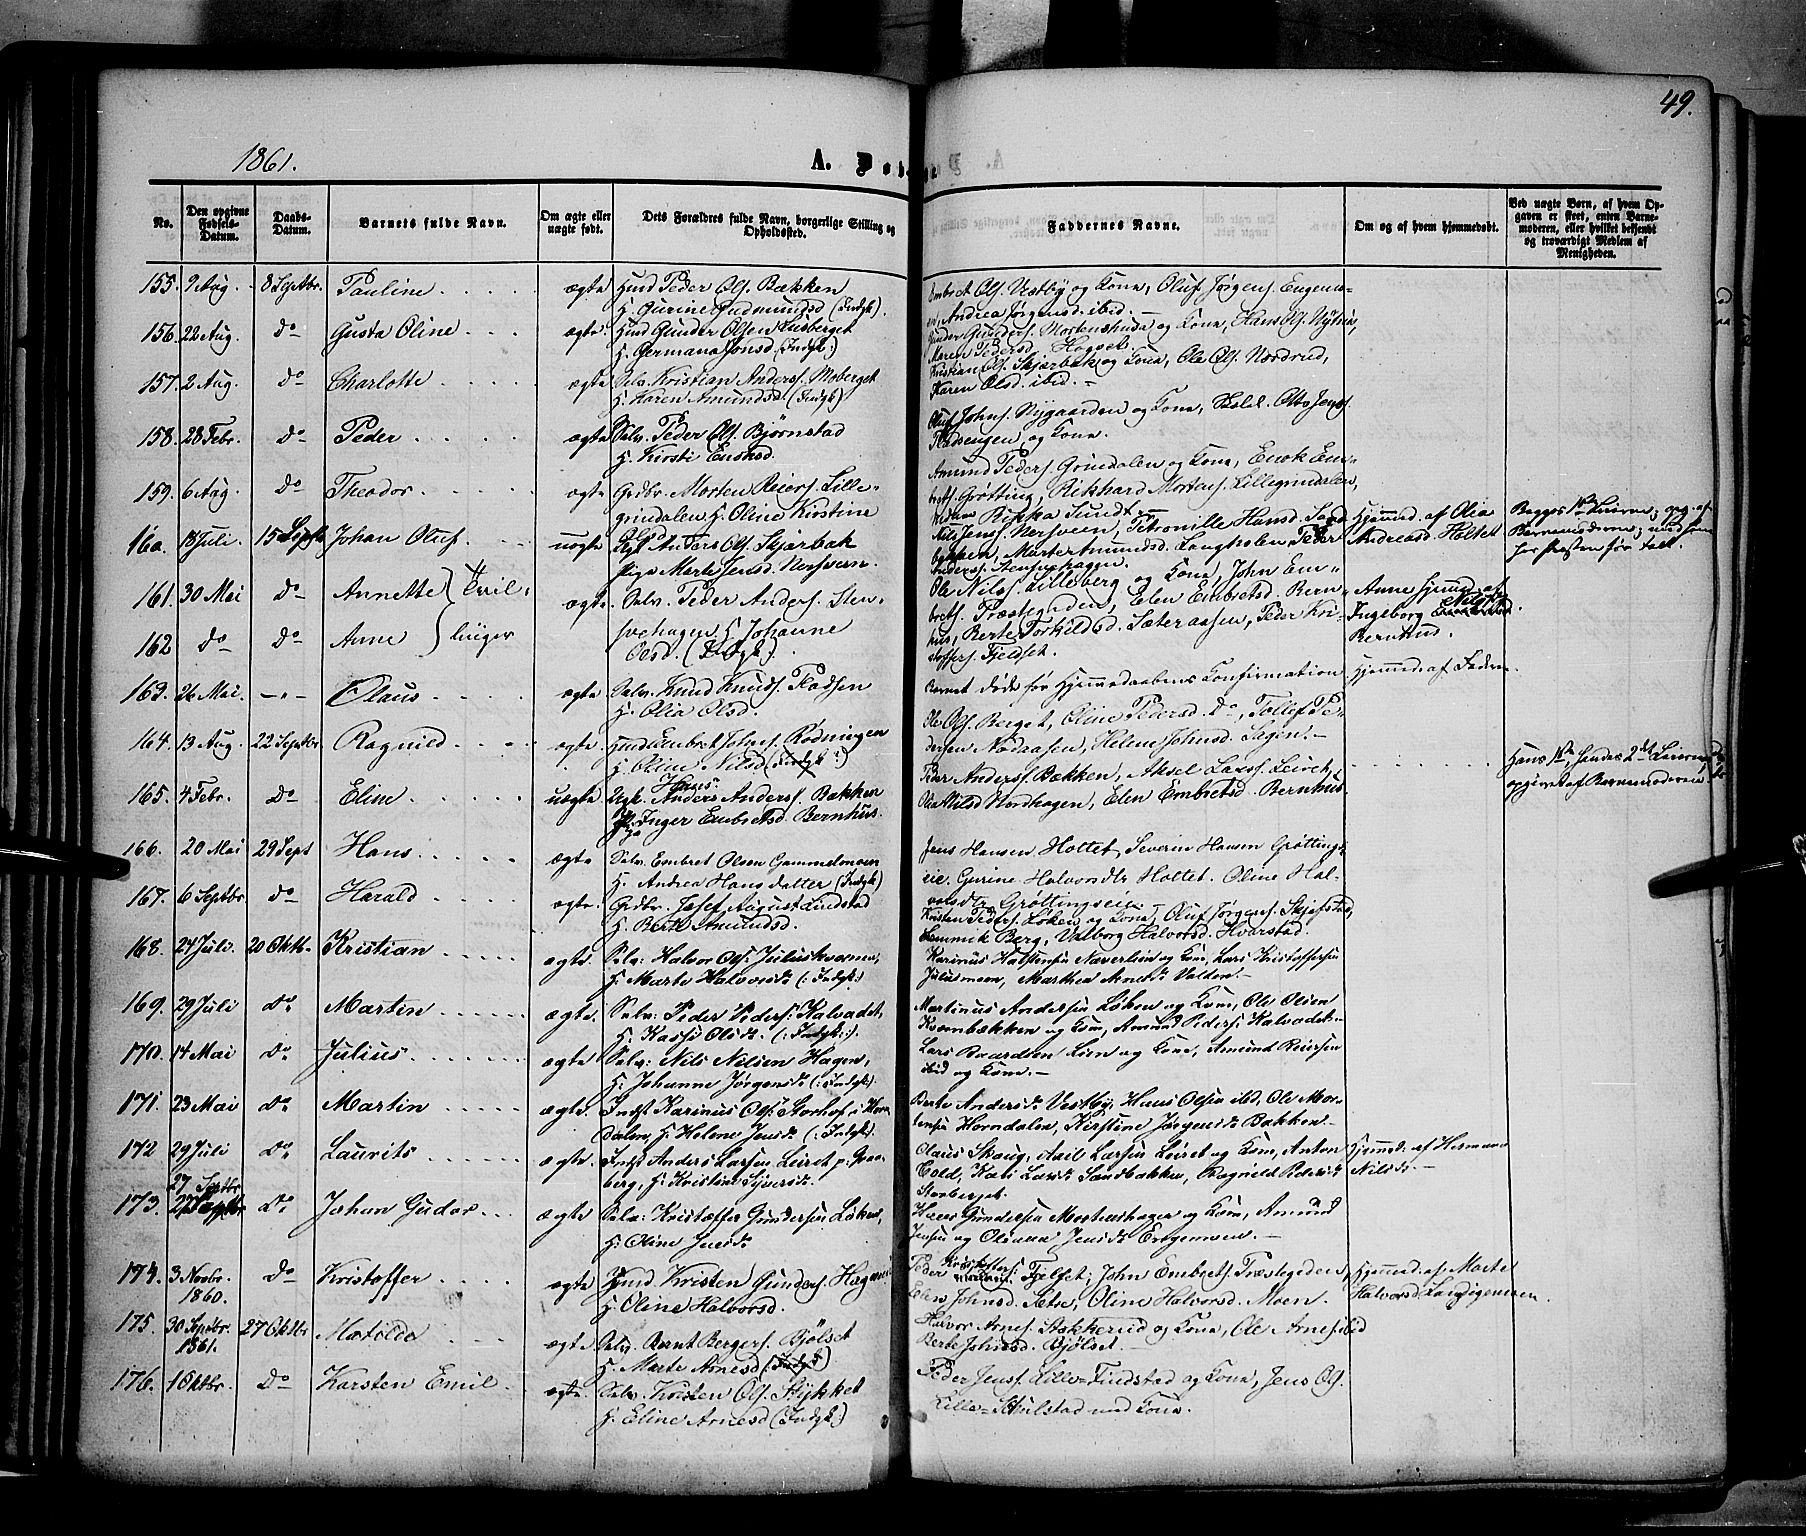 49.
1861.
A. Døbe
No.
Den opgivne Fødsels-Datum.
Daabs-Datum.
Barnets fulde Navn.
Om ægte eller uægte født.
Dets Forældres fulde Navn, borgerlige Stilling og Opholdssted.
Faddernes Navne.
Om og af hvem hjemmedøbt.
Ved uægte Børn, af hvem Opgaven er skeet, enten Barnemoderen, eller hvilket bekjendt og troværdigt Medlem af Menigheden.
155. 9 Aug. 8 Septbr. Pauline ægte Huusmd Peder Ols. Bækken
H. Gurine Gudmundsd (Indgk).
Embret Ols. Vestby og Kone, Oluf Jørgens. Engemoen, Andrea Jørgensd. ibid.
156. 22 Aug. Do Gusta Oline ægte Hmd Gunder Olsen
H. Germana Jonsd. (Indgk.)
Gunder Gunders. Mortenshuda og Kone, Hans Ols. Nytrøa,
Maren Pedersd.
157. 2 Aug. Do Charlotte ægte Selv. Kristian Anders. Moberget
H. Karen Amundsd. (Indgk)
Kristian Ols. Skjærbæk og Kone, Ole Ols. Nordrud,
Karen Olsd. ibid.
158. 28 Febr. Do Peder ægte Selv. Peder Ols. Bjørnstad
H. Kirsti
Oluf Johns. Nygaarden og Kone, Otto Jens.
Pladsengen og Kone.
159. 6 Aug Do Theodor ægte Grdbr. Morten Reiers. Lille-
grindalen H. Oline Kirstine
Amund Peders. Grindalen og Kone, Enok Em-
brets. Grøtting, Rikhard Mortens. Lillegrindalen,
160. 18 Juli 15 Septbr Johan Oluf uægte Ugk. Anders Ols. Skjærbæk
Pige Marte Jensd. Nersveen.
Nils Jens. Nersveen, Petronille Hansd. Sand
bakken, Marte Amundsd. Langholen, Peder
Anders. Stensvehagen.
Hjemmd. af Olia
Andreasd. Holtet
Begges 1ste Leierm.
161. 30 Mai Do Annette } Tvil-
ægte Selv. Peder Anders. Sten-
svehagen H. Johanne
Olsd. (Indgk).
162 Do Do Anne } linger
Ole Nils. Lilleberg og Kone, John Em-
brets. Præstegården, Elen Embretsd. Bern-
hus, Berte Torkildsd. Sæteraasen, Peder Kri-
stoffers. Fjeldset.
Anne hjemmd. af
Ingeborg Nilsd.
Bernhus.
163. 26 Mai. Olaus ægte Selv. Knud Knuds. Pladsen
H. Olia Olsd.
Barnet døde før Hjemmedaabens Konfirmation
Hjemmd. af Faderen.
164. 13 Aug. 22 Septbr Ragnild ægte. Hmd Embret Johns. Rødningen
H. Oline Nilsd. (Indgk.)
Ole Ols. Berget, Oline Pedersd. Do, Tollef Pe-
dersen Nordaasen, Helene Johnsd. Hagen.
165. 4 Febr. Do Eline uægte Ugk. Hans Anders. Bækken
Pige Inger Embretsd. Bernhus.
Peder Anders. Bækken, Aksel Lars. Leiret,
Olia Nilsd Nordhagen, Elen Embretsd. Bernhus.
Hans 1ste, hendes 2det Leierm.
opgivet af Barnemoderen
166. 20 Mai 29 Sept Hans ægte Selv. Embret Olsen Gammelmoen
H. Andrea Hansdatter (Indgk)
Jens Hansen Holtet, Severin Hansen Grøttings-
eie. Gurine Halvorsdtr Holtet. Oline Hal-
vorsdtr Grøttingseie.
167. 6 Septbr Do Harald ægte. Grdbr. Josef August Lindstad
H. Berte Amundsd.
Kristen Peders. Løken og Kone, Oluf Jørgens. Skjefstad,
Lemmik Berg, Valborg Halvorsd. Hvarstad.
168. 24 Juli. 20 Oktbr Kristian ægte. Selv: Halvor Ols. Juluskvernen,
H. Marte Halvorsdr (: Indgk:)
Karinus Halstensen Næverlien og Kone, Lars Kristoffersen
Julusmoen, Marthea Arnesdr Valden.
169. 29 Juli Do Martin ægte. Selv: Peder Peders: Kalvadet,
H. Kasse Olsdr. (:Indgk:).
Martinus Andersen Løken og Kone, Ole Olsen
Kvernbækken og Kone, Amund Peders: Kalvadet.
170. 14 Mai Do Julius ægte Selv: Nils Nilsen Hagen,
H: Johanne Jørgensdr (: Indgk:).
Lars Baardsen Lien og Kone, Amund Reiersen
ibid og Kone.
171. 23 Mai Do Martin ægte. Indst Karinus Ols. Storhof i Horn-
dalen, H. Helene Jensdr (: Indgk:).
Berte Andersdr Vestby, Hans Olsen ibid, Ole Mor-
tensen Horndalen, Kirstine Jørgensdr Bakken.
172 29 Juli Do Laurits ægte. Indst Anders Larsen Leiret p. Graa-
berg, H. Kristine Syversdr.
Olaus Skaug, Axel Larsen Leiret og Kone, Anton
Cold, Kari Larsdr Sandbakken, Ragnild Pedersdr
Storberget.
Hjemmd. af Hermana
Nilsdr.
173. 27 Septbr Do Johan Gudor ægte Selv: Kristoffer Gundersen Løken,
H: Oline Jensdr
Hans Gundersen Mortenshagen og Kone, Amund
Jensen og Olianna Jensdr Engemoen.
174. 3 Novbr. 1860. Do Kristoffer ægte Hmd. Kristen Gunders. Hagen
H. Oline Halvorsd.
Peder Kristoffers. Fjelset; John Embrets. Præstegården,
Elen Johnsd. Sætre, Oline Halvorsd. Moen.
Hjemmd. af Marte
Halvorsd. Langengmoen.
175. 30 Septbr. 1861. 27 Oktbr Matilde ægte. Selv. Bernt Bergers. Bjølset
H. Marte Arnesd. (Indgk)
Halvor Arnes. Askkerud og Kone, Ole Arnes. ibid
Berte Johnsd. Bjølset.
176. 1 Oktbr. Do Karsten Emil. ægte Selv. Kristen Ols. Stykket
H. Eline Arnesd (Indgk.)
Peder Jens. Lille-Findstad og Kone, Jens Ols.
Lille-Skulstad med Kone.